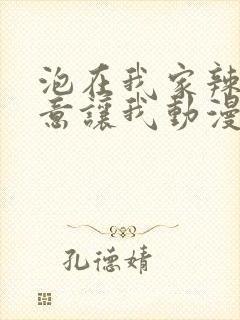 泡在我家辣
意讓我動漫
孔德婧